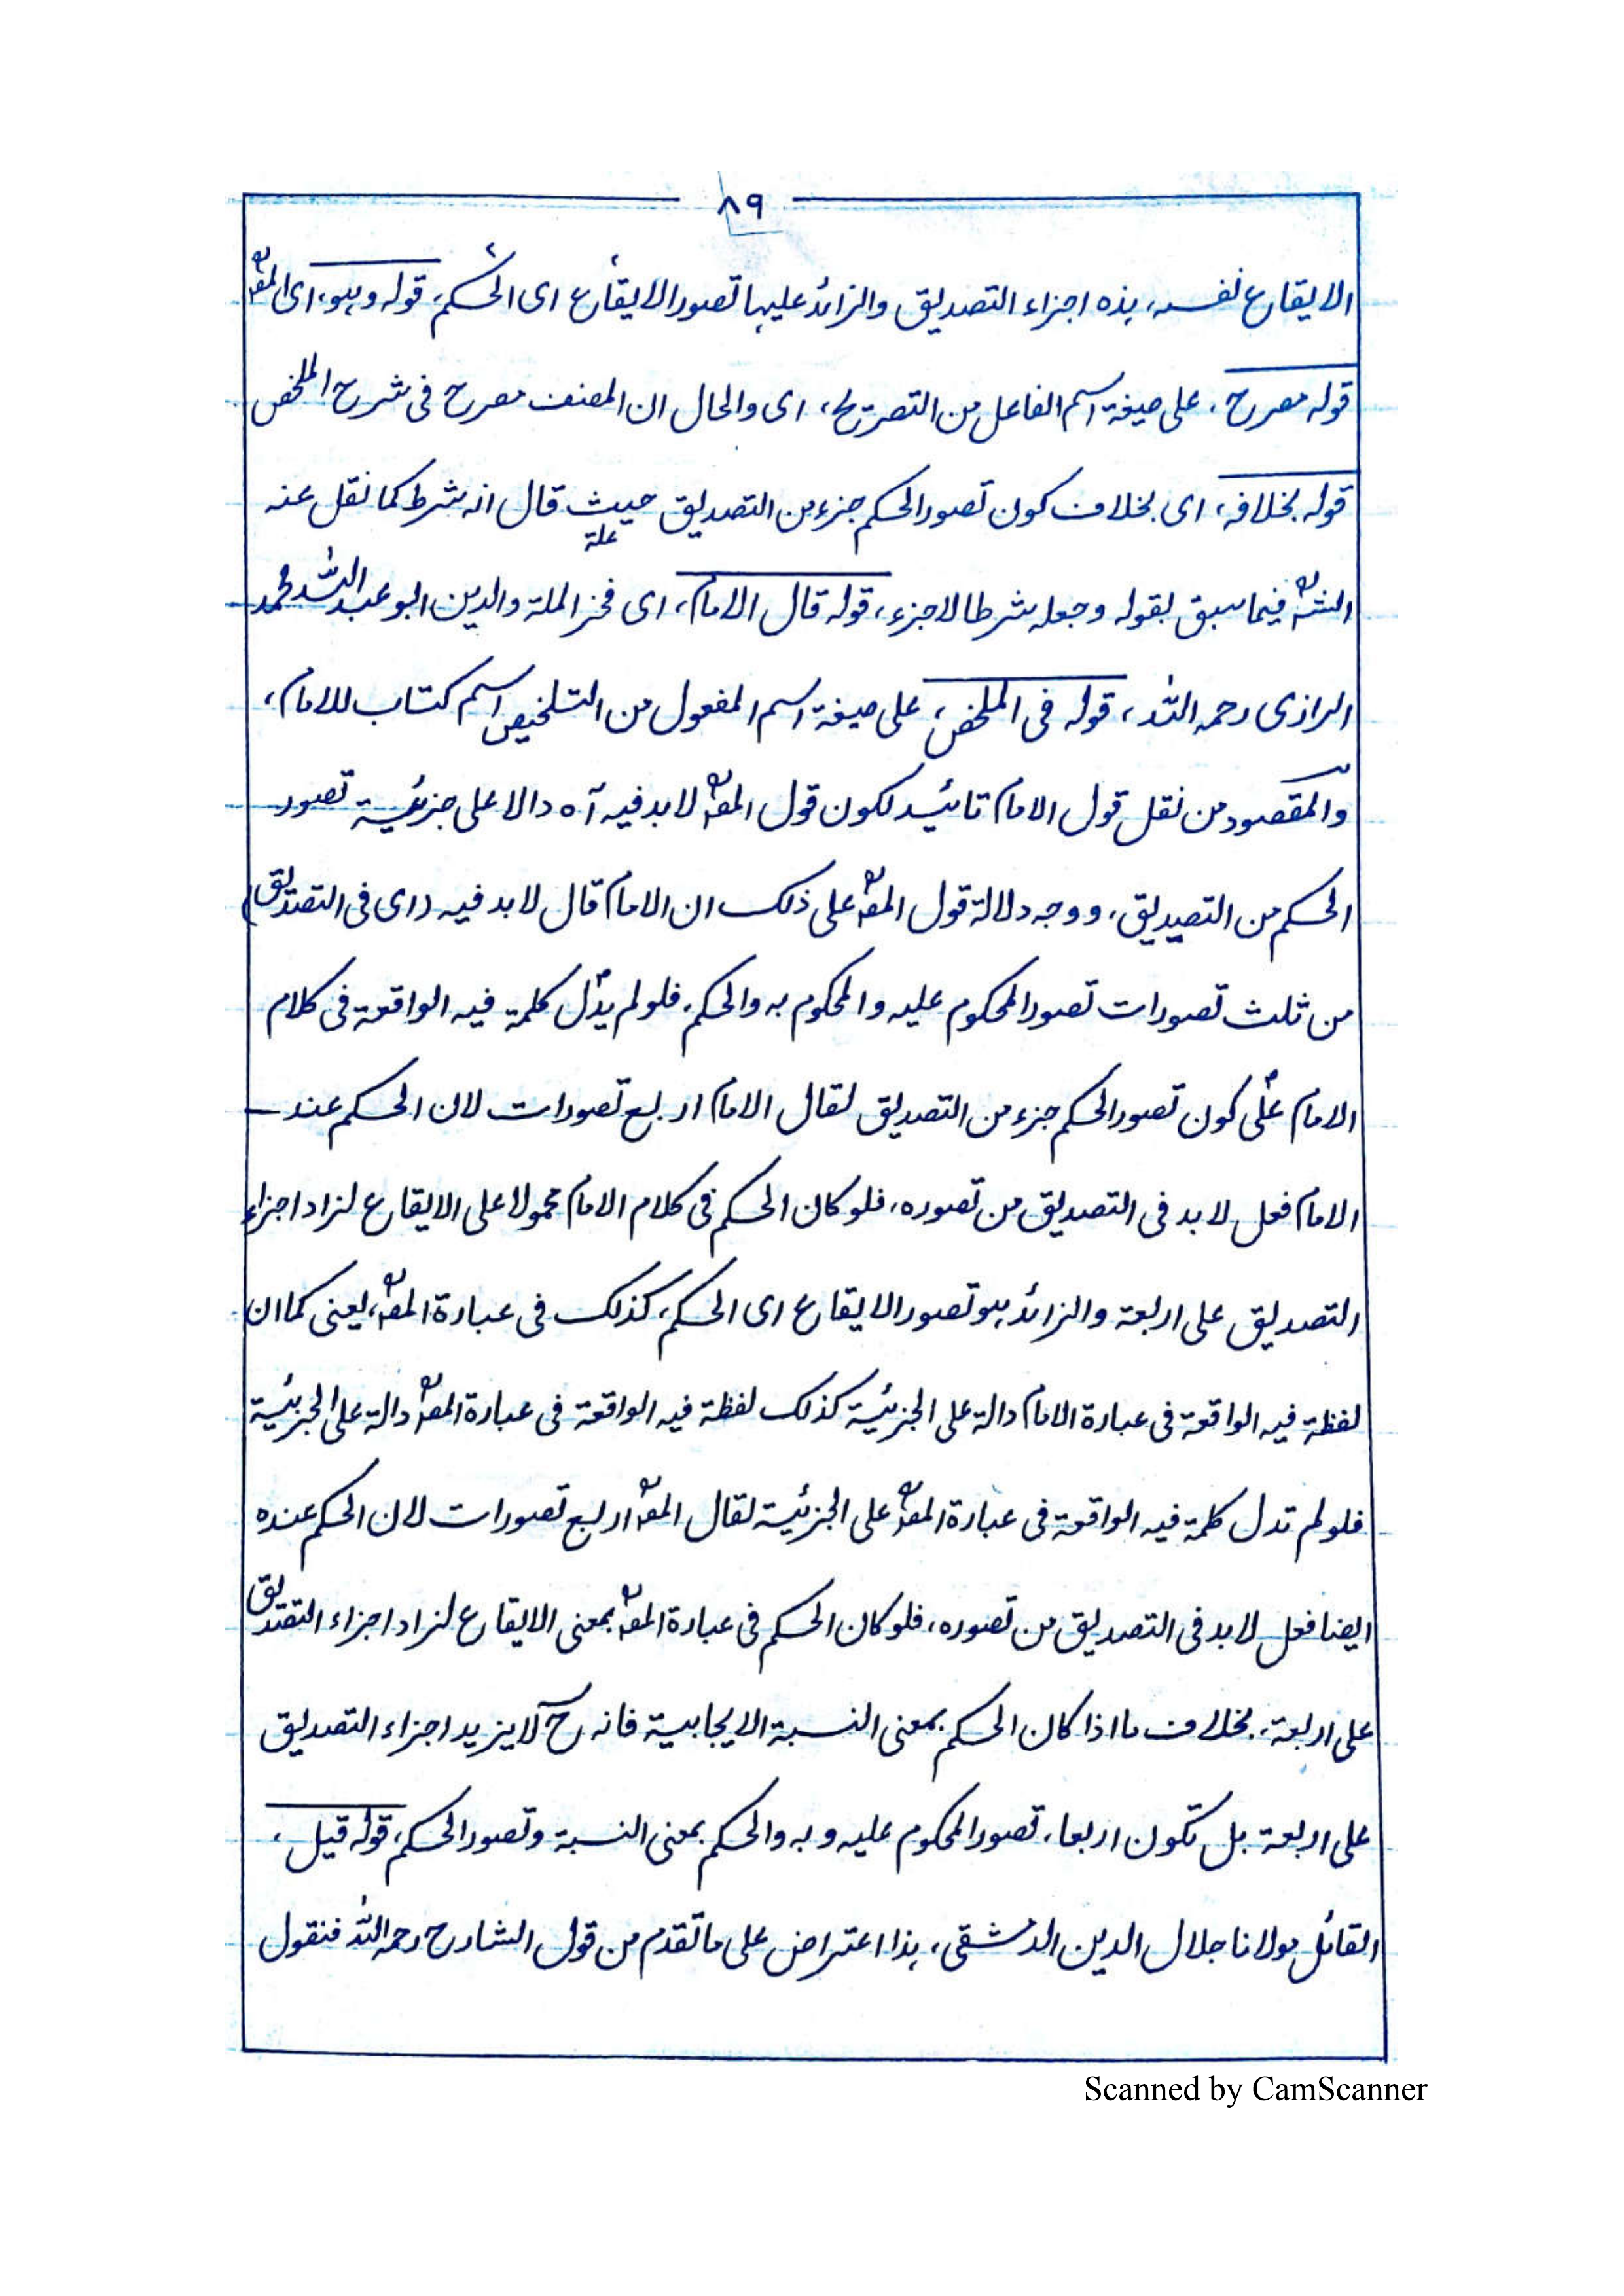 ٨٩
الايقاع نفسه، هذه اجزاء التصديق والزائد عليها تصور الايقاع اى الحكم، قوله وهو، اى المصـ
قوله مصرح، على صيغة اسم الفاعل من التصريح، اى والحال ان المصنف مصرح فى شرح الملخص
قوله بخلافه، اى بخلاف كون تصور الحكم جزء من التصديق حيث قال انه شرط كما نقل عنه
علة
الشـ فيما سبق بقوله وجعله شرطا لاجزء، قوله قال الامام، اى فخر الملة والدين ابو عبد الله محمد
الرازى رحمه الله، قوله فى الملخص، على صيغة اسم المفعول من التلخيص اسم كتاب للامام،
والمقصود من نقل قول الامام تائيد لكون قول المصـ لابد فيه آه دالا على جزئية تصور
الحكم من التصديق، ووجه دلالة قول المصـ على ذلك ان الامام قال لابد فيه (اى فى التصديق)
من ثلث تصورات تصور المحكوم عليه والمحكوم به والحكم، فلو لم يدل كلمة فيه الواقعة فى كلام
الامام على كون تصور الحكم جزء من التصديق لقال الامام اربع تصورات لان الحكم عند
الامام فعل لابد فى التصديق من تصوره، فلو كان الحكم فى كلام الامام محمولا على الايقاع لزاد اجزاء
التصديق على اربعة والزائد هو تصور الايقاع اى الحكم، كذلك فى عبارة المصـ، يعنى كما ان
لفظة فيه الواقعة فى عبارة الامام دالة على الجزئية كذلك لفظة فيه الواقعة فى عبارة المصـ دالة على الجزئية
فلو لم تدل كلمة فيه الواقعة فى عبارة المصـ على الجزئية لقال المصـ اربع تصورات لان الحكم عنده
ايضا فعل لابد فى التصديق من تصوره، فلو كان الحكم فى عبارة المصـ بمعنى الايقاع لزاد اجزاء التصديق
على اربعة، بخلاف ما اذا كان الحكم بمعنى النسبة الايجابية فانه ح لايزيد اجزاء التصديق
على اربعة بل تكون اربعا، تصور المحكوم عليه وبه والحكم بمعنى النسبة وتصور الحكم، قوله قيل،
القائل مولانا جلال الدين الدمشقى، هذا اعتراض على ماتقدم من قول الشارح رحمه الله فنقول
Scanned by CamScanner